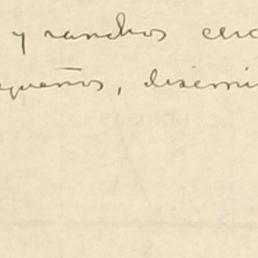 y ranchos cerc
queños, disemi